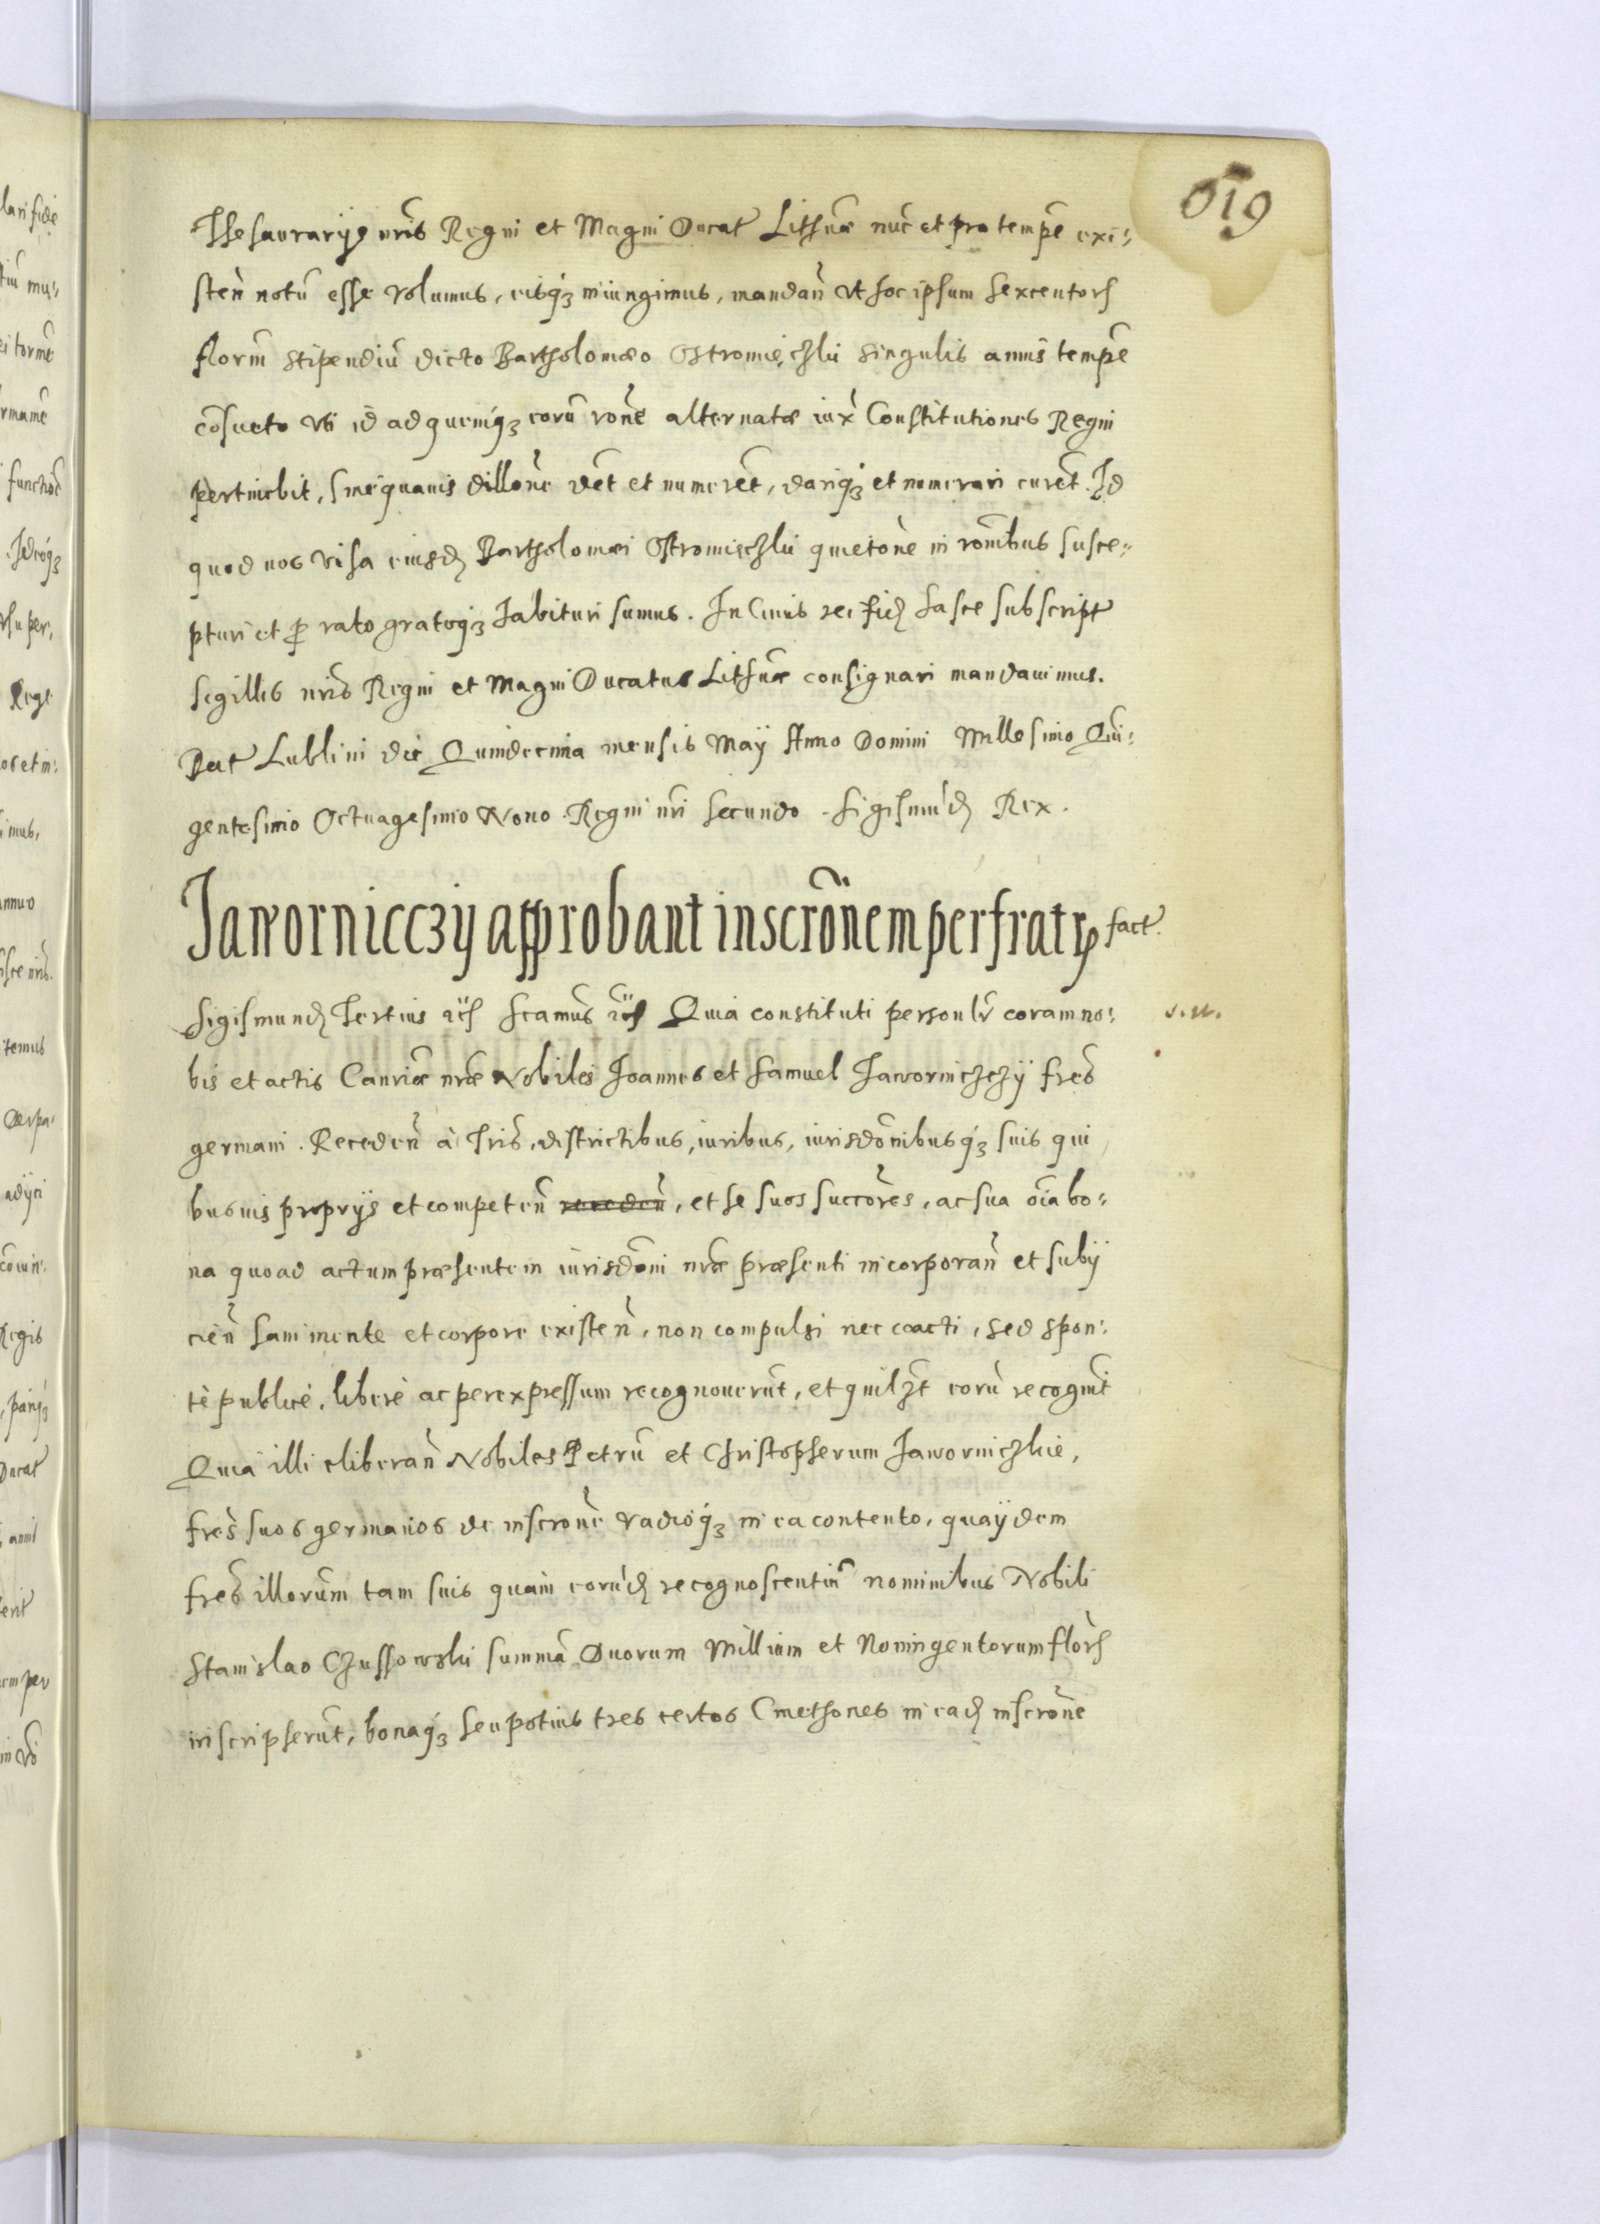 019
Thesaurarijs nris Regni et Magni Ducat Lithuae nuc et pro tempe exi:
sten notu esse volumus, eisq3 iniungimus, mandan vt hoc ipsum sexcentor
floren stipendiu dicto Bartholomeo Ostromięczkii singulis annis tempe
cosueto vti id ad quemq3 eoru rone alternatae iux Constitutiones Regni
pertinebit, sine quauis dillone det et numeret, dariq3 et numerari curet. Id
quod nos visa eiusd Bartholomaei Ostromieczkii quietone in ronibus susce:
pturi et p rato gratoq3 habituri sumus. In Cuius rei fid hasce subscript
sigillis nris Regni et Magni Ducatus Lithuae consignari mandauimus.
Dat Lublini die Quindecima mensis Maÿ Anno Domini Millesimo Qui:
gentesimo Octuagesimo Nono. Regni nri Secundo. Sigismud Rex.
Jaworniccȝÿ approbant inscronem per fratres fact.
Sigismund Tertius etc Scamus etc Quia constituti personlr coram no:
bis et actis Canriae nrae Nobiles Joannes et Samuel Jaworniczczÿ fres
germani. Receden à Tris, districtibus, iuribus, iurisdonibusq3 suis qui
busuis proprijs et competen receden, et se suos succores, ac sua oia bo:
na quoad actum praesentem iurisdoni nrae praesenti incorporan et subij
cien sani mente et corpore existen, non compulsi nec coacti, sed spon:
tè publicè, liberè ac per expressum recognouerut, et quilzt eoru recognit
Quia illi eliberan Nobiles Petru et Christopherum Jaworniczkie,
fres suos germanos de inscrone vadioq3 in ea contento, qua ijdem
fres illorum tam suis quam eorud recognoscentiu nominibus Nobili
Stanislao Czussowski summa Duorum Millium et Noningentorum flor
inscripserut, bonaq3 seu potius tres certos Cmethones in ead inscrone